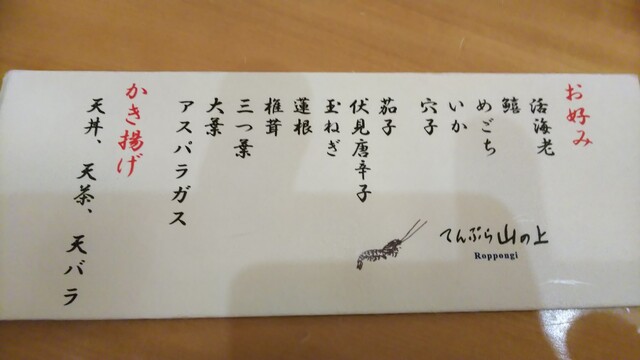 お好み
活海老
鱚
めごち
いか
穴子
茄子
伏見唐辛子
玉ねぎ
蓮根
椎茸
三つ葉
大葉
アスパラガス
かき揚げ
天丼、天茶、天バラ
てんぷら山の上
Roppongi